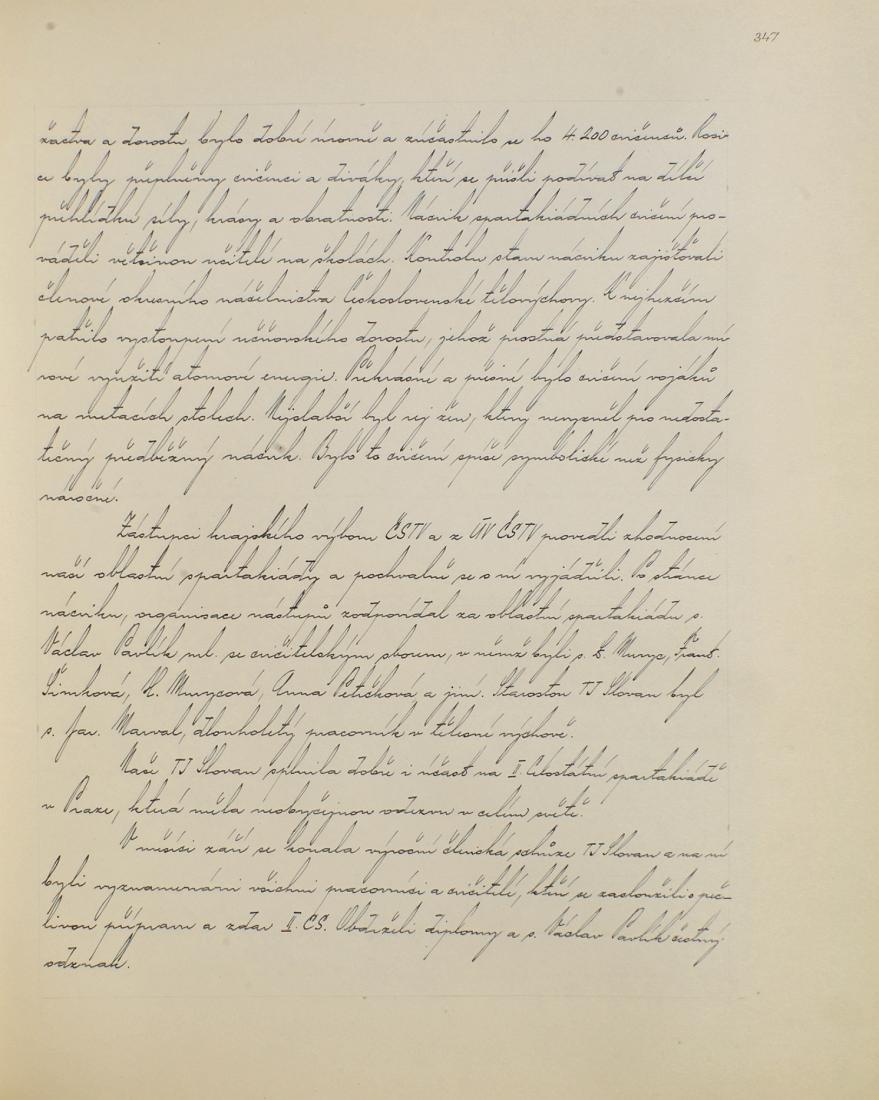 347
žactva a dorostu bylo dobré úrovně a zúčastnilo se ho 4.200 cvičenců. Rosi-
ce byly přeplněny cvičenci a diváky, kteří se přišli podívat na dílčí
přehlídku síly, krásy a obratnosti. Nácvik spartakiádních cvičení pro-
váděli většinou učitelé na školách. Kontrolu stavu nácviku zajišťovali
členové okresního náčelnictva Československé tělovýchovy. K nejhezčím
patřilo vystoupení učňovského dorostu, jehož prostná představovala mí-
rové využití atomové energie. Překrásné a přesné bylo cvičení vojáků
na metacích stolech. Nejslabší byl rej žen, který nevyzněl pro nedosta-
tečný předběžný nácvik. Bylo to cvičení spíše symbolické než fysicky
náročné.
Zástupci krajského výboru ČSTV a z ÚV ČSTV provedli zhodnocení
naší oblastní spartakiády a pochvalně se o ní vyjádřili. Po stránce
nácviku, organisace nástupů zodpovídal za oblastní spartakiádu s.
Václav Pavlík ml. se cvičitelským sborem, v němž byli s. Munyc, Frant.
Šimková, H. Munycová, Anna Petičková a jiní. Starostou TJ Slovan byl
s. Jar. Marval, dlouholetý pracovník v tělesné výchově.
Naše TJ Slovan splnila dobře i účast na II. Celostátní spartakiádě
v Praze, která měla neobyčejnou odezvu v celém světě.
V měsíci září se konala výroční členská schůze TJ Slovan a na ní
byli vyznamenáni všichni pracovníci a cvičitelé, kteří se zasloužili o peč-
livou přípravu a zdar II. CS. Obdrželi diplomy a s. Václav Pavlík čestný
odznak.